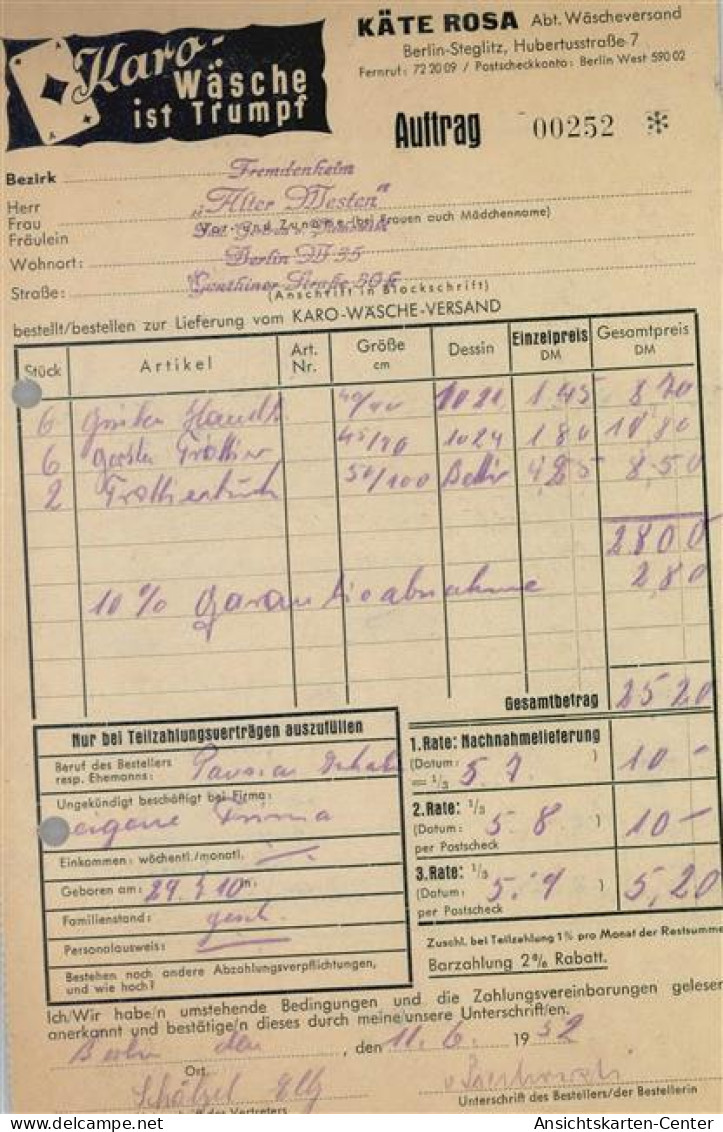 Karo-
Wäsche
ist Trumpf
KÄTE ROSA Abt. Wäscheversand
Berlin-Steglitz, Hubertusstraße 7
Fernruf: 72 20 09 / Postscheckkonto: Berlin West 590 02
Auftrag 00252 *
Bezirk Fremdenheim
Herr
Frau
Fräulein
„Alter Westen"
Vor- und Zuname (bei Frauen auch Mädchenname)
Wohnort: Berlin W 35
Straße: Genthiner Straße 30
(Anschrift in Blockschrift)
bestellt/bestellen zur Lieferung vom KARO-WÄSCHE-VERSAND
Stück Artikel Art. Nr. Größe cm Dessin Einzelpreis DM Gesamtpreis DM
6 40/90 1021 1.45 8,70
6 45/90 1024 1.80 10,80
2 50/100 4,25 8,50
28 00
10% Garantieabnahme 2,80
Gesamtbetrag 25 20
Nur bei Teilzahlungsverträgen auszufüllen
Beruf des Bestellers
resp. Ehemanns:
Ungekündigt beschäftigt bei Firma:
eigene Firma
Einkommen: wöchentl./monatl.
Geboren am:
Familienstand: gesch.
Personalausweis:
Bestehen noch andere Abzahlungsverpflichtungen,
und wie hoch?
1. Rate: Nachnahmelieferung
(Datum: 5. 7. ) 10 -
= 1/3
2. Rate: 1/3
(Datum: 5. 8. ) 10 -
per Postscheck
3. Rate: 1/3
(Datum: 5. 9 ) 5,20
per Postscheck
Zuschl. bei Teilzahlung 1% pro Monat der Restsumme
Barzahlung 2% Rabatt.
Ich/Wir habe/n umstehende Bedingungen und die Zahlungsvereinbarungen gelesen
anerkannt und bestätige/n dieses durch meine/unsere Unterschrift/en.
Berlin den , den 11. 6. 19 52
Ort
Unterschrift des Bestellers/der Bestellerin
Ansichtskarten-Center